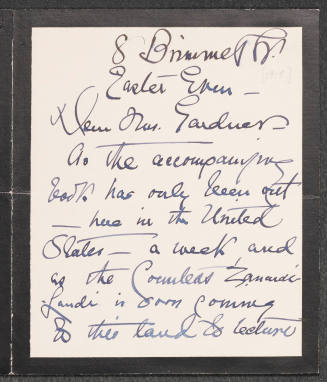 8 Brimmer St.
Easter Even —
Dear Mrs. Gardner —
As the accompanying
book has only been out
— here in the United
States — a week and
as the Countess Zanardi-
Landi is soon coming
to this land to lecture